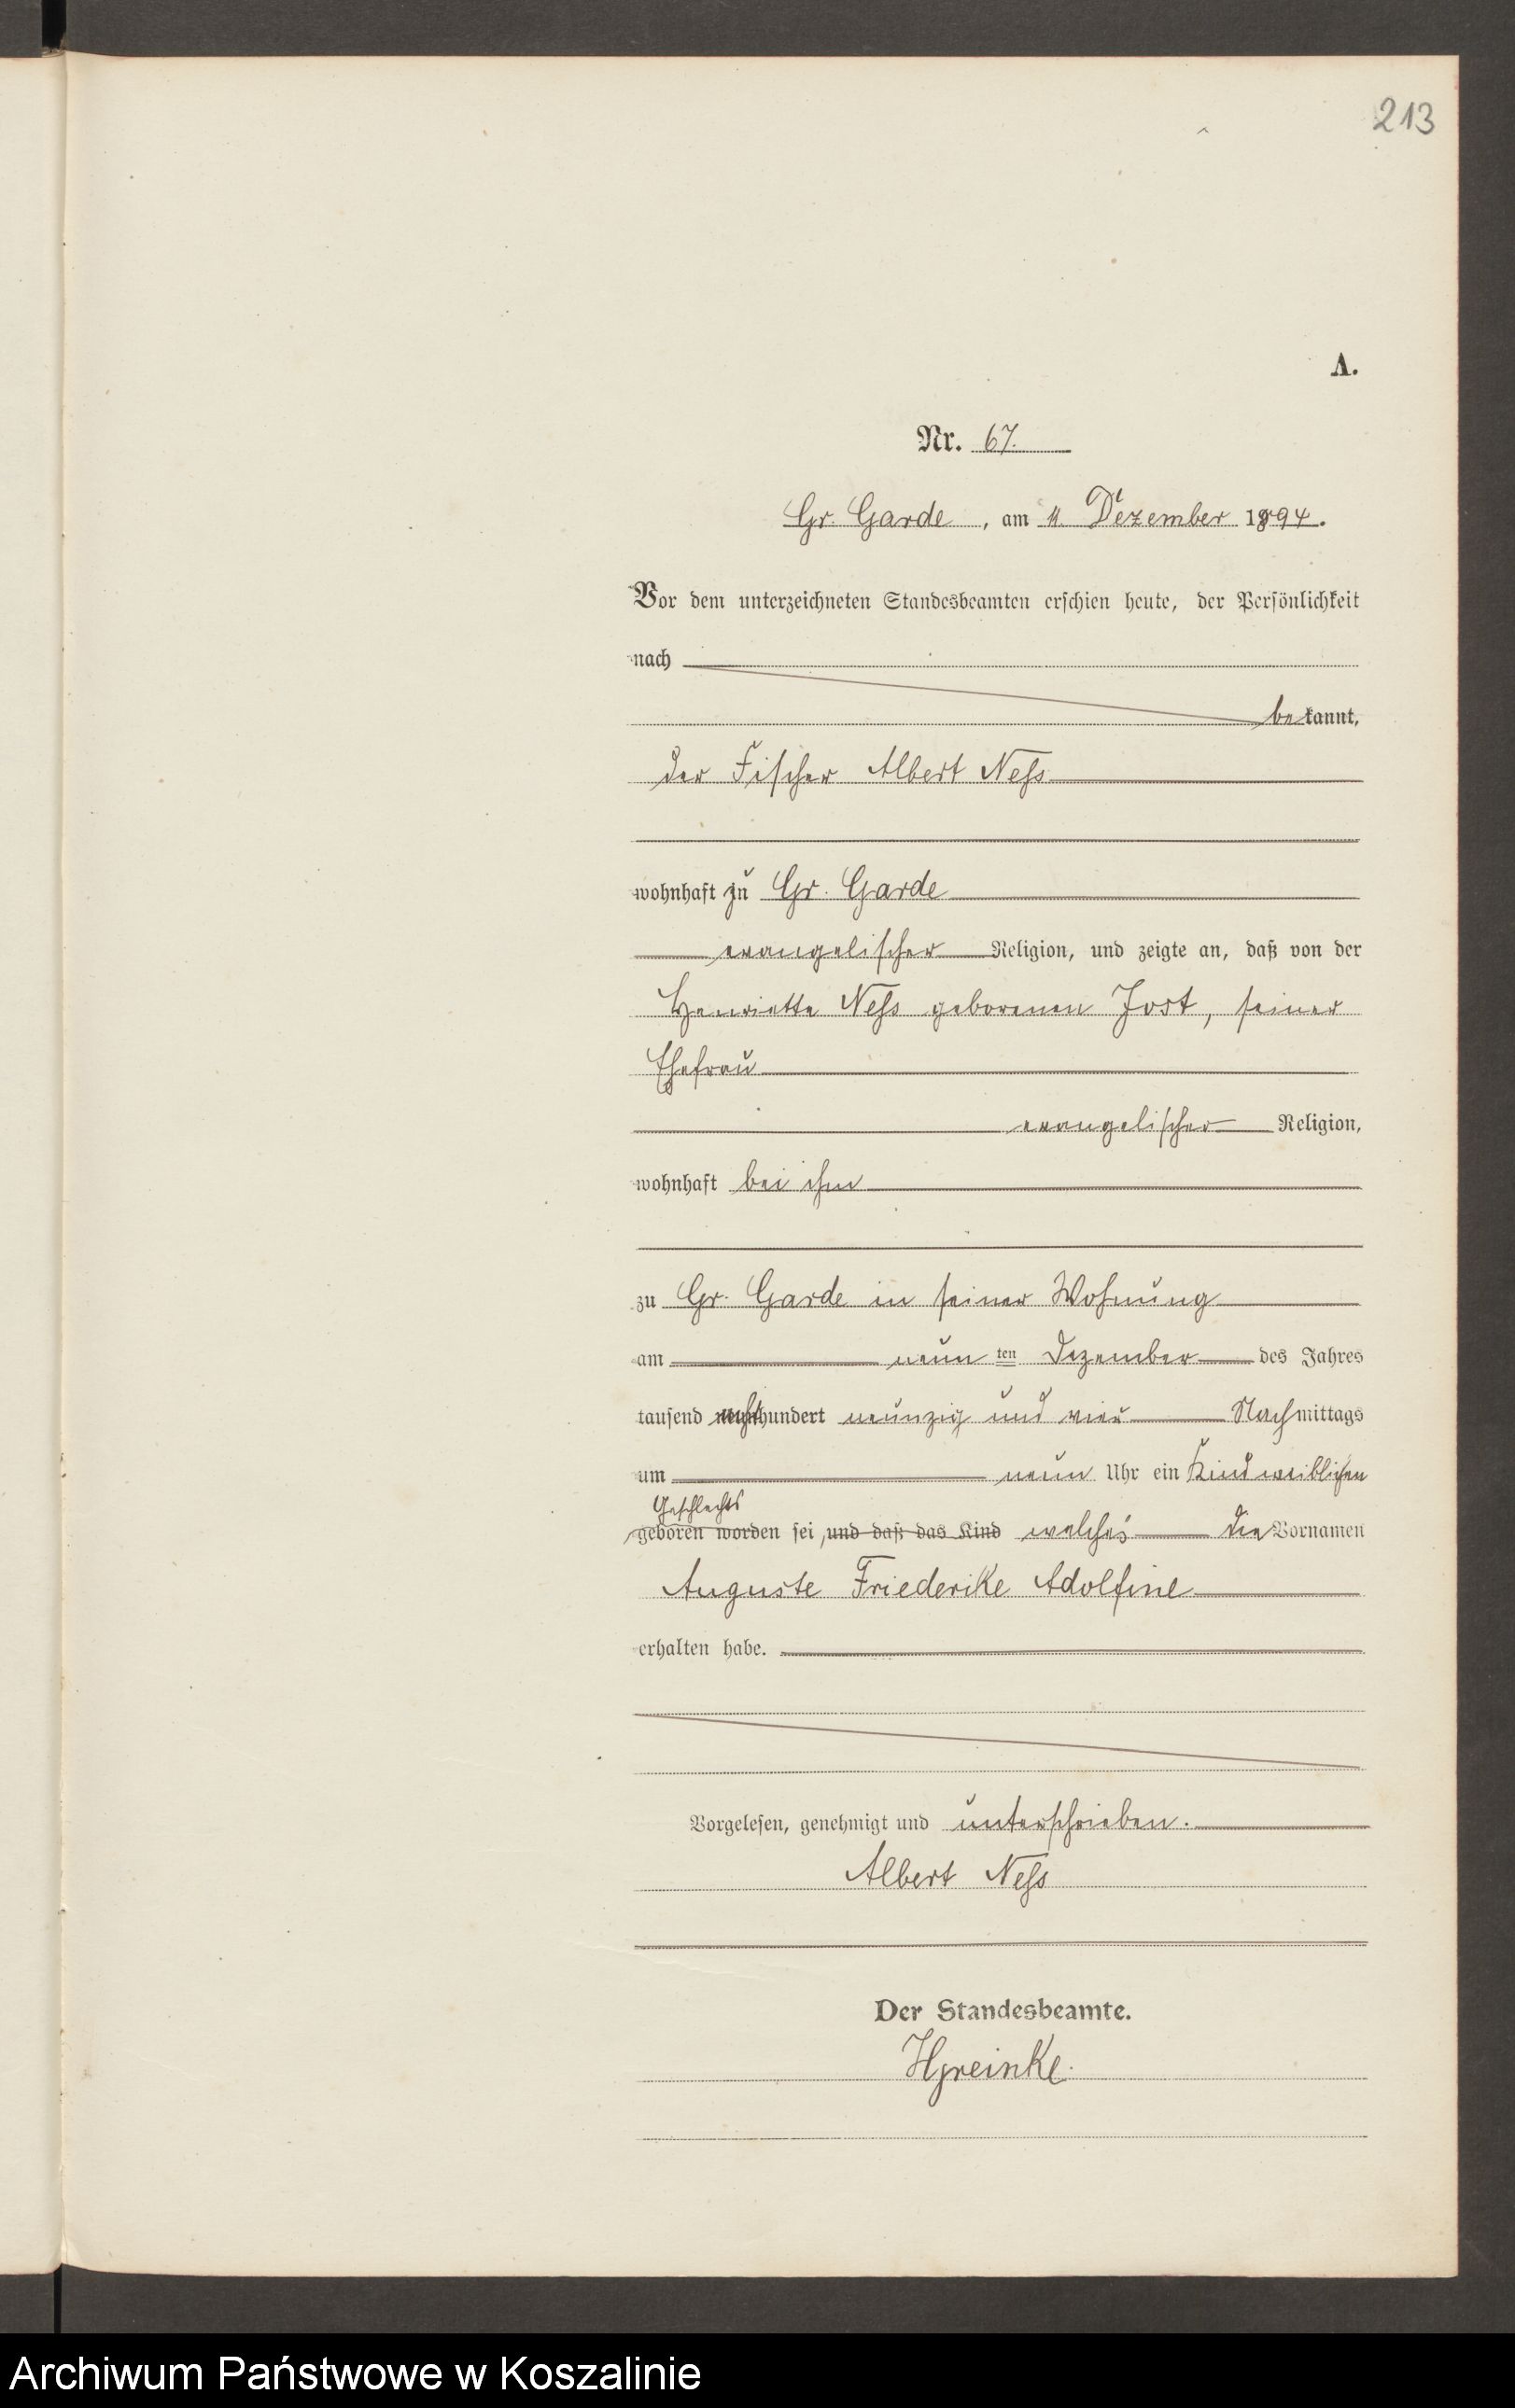 213
A.
Nr. 67.
Gr. Garde, am 11. Dezember 1894.
Vor dem unterzeichneten Standesbeamten erschien heute, der Persönlichkeit
nach
bekannt,
der Fischer Albert Neſs
wohnhaft zu Gr. Garde
evangelischer Religion, und zeigte an, daß von der
Henriette Neſs geborenen Jost, seiner
Ehefrau
evangelischer Religion,
wohnhaft bei ihm
zu Gr. Garde in seiner Wohnung
am neun ten Dezember des Jahres
tausend achthundert neunzig und vier Nachmittags
um neun Uhr ein Kind weiblichen
Geschlechts
geboren worden sei, und daß das Kind welches die Vornamen
Auguste Friederike Adolfine
erhalten habe.
Vorgelesen, genehmigt und unterschrieben.
Albert Neſs
Der Standesbeamte.
HGreinke.
Archiwum Państwowe w Koszalinie